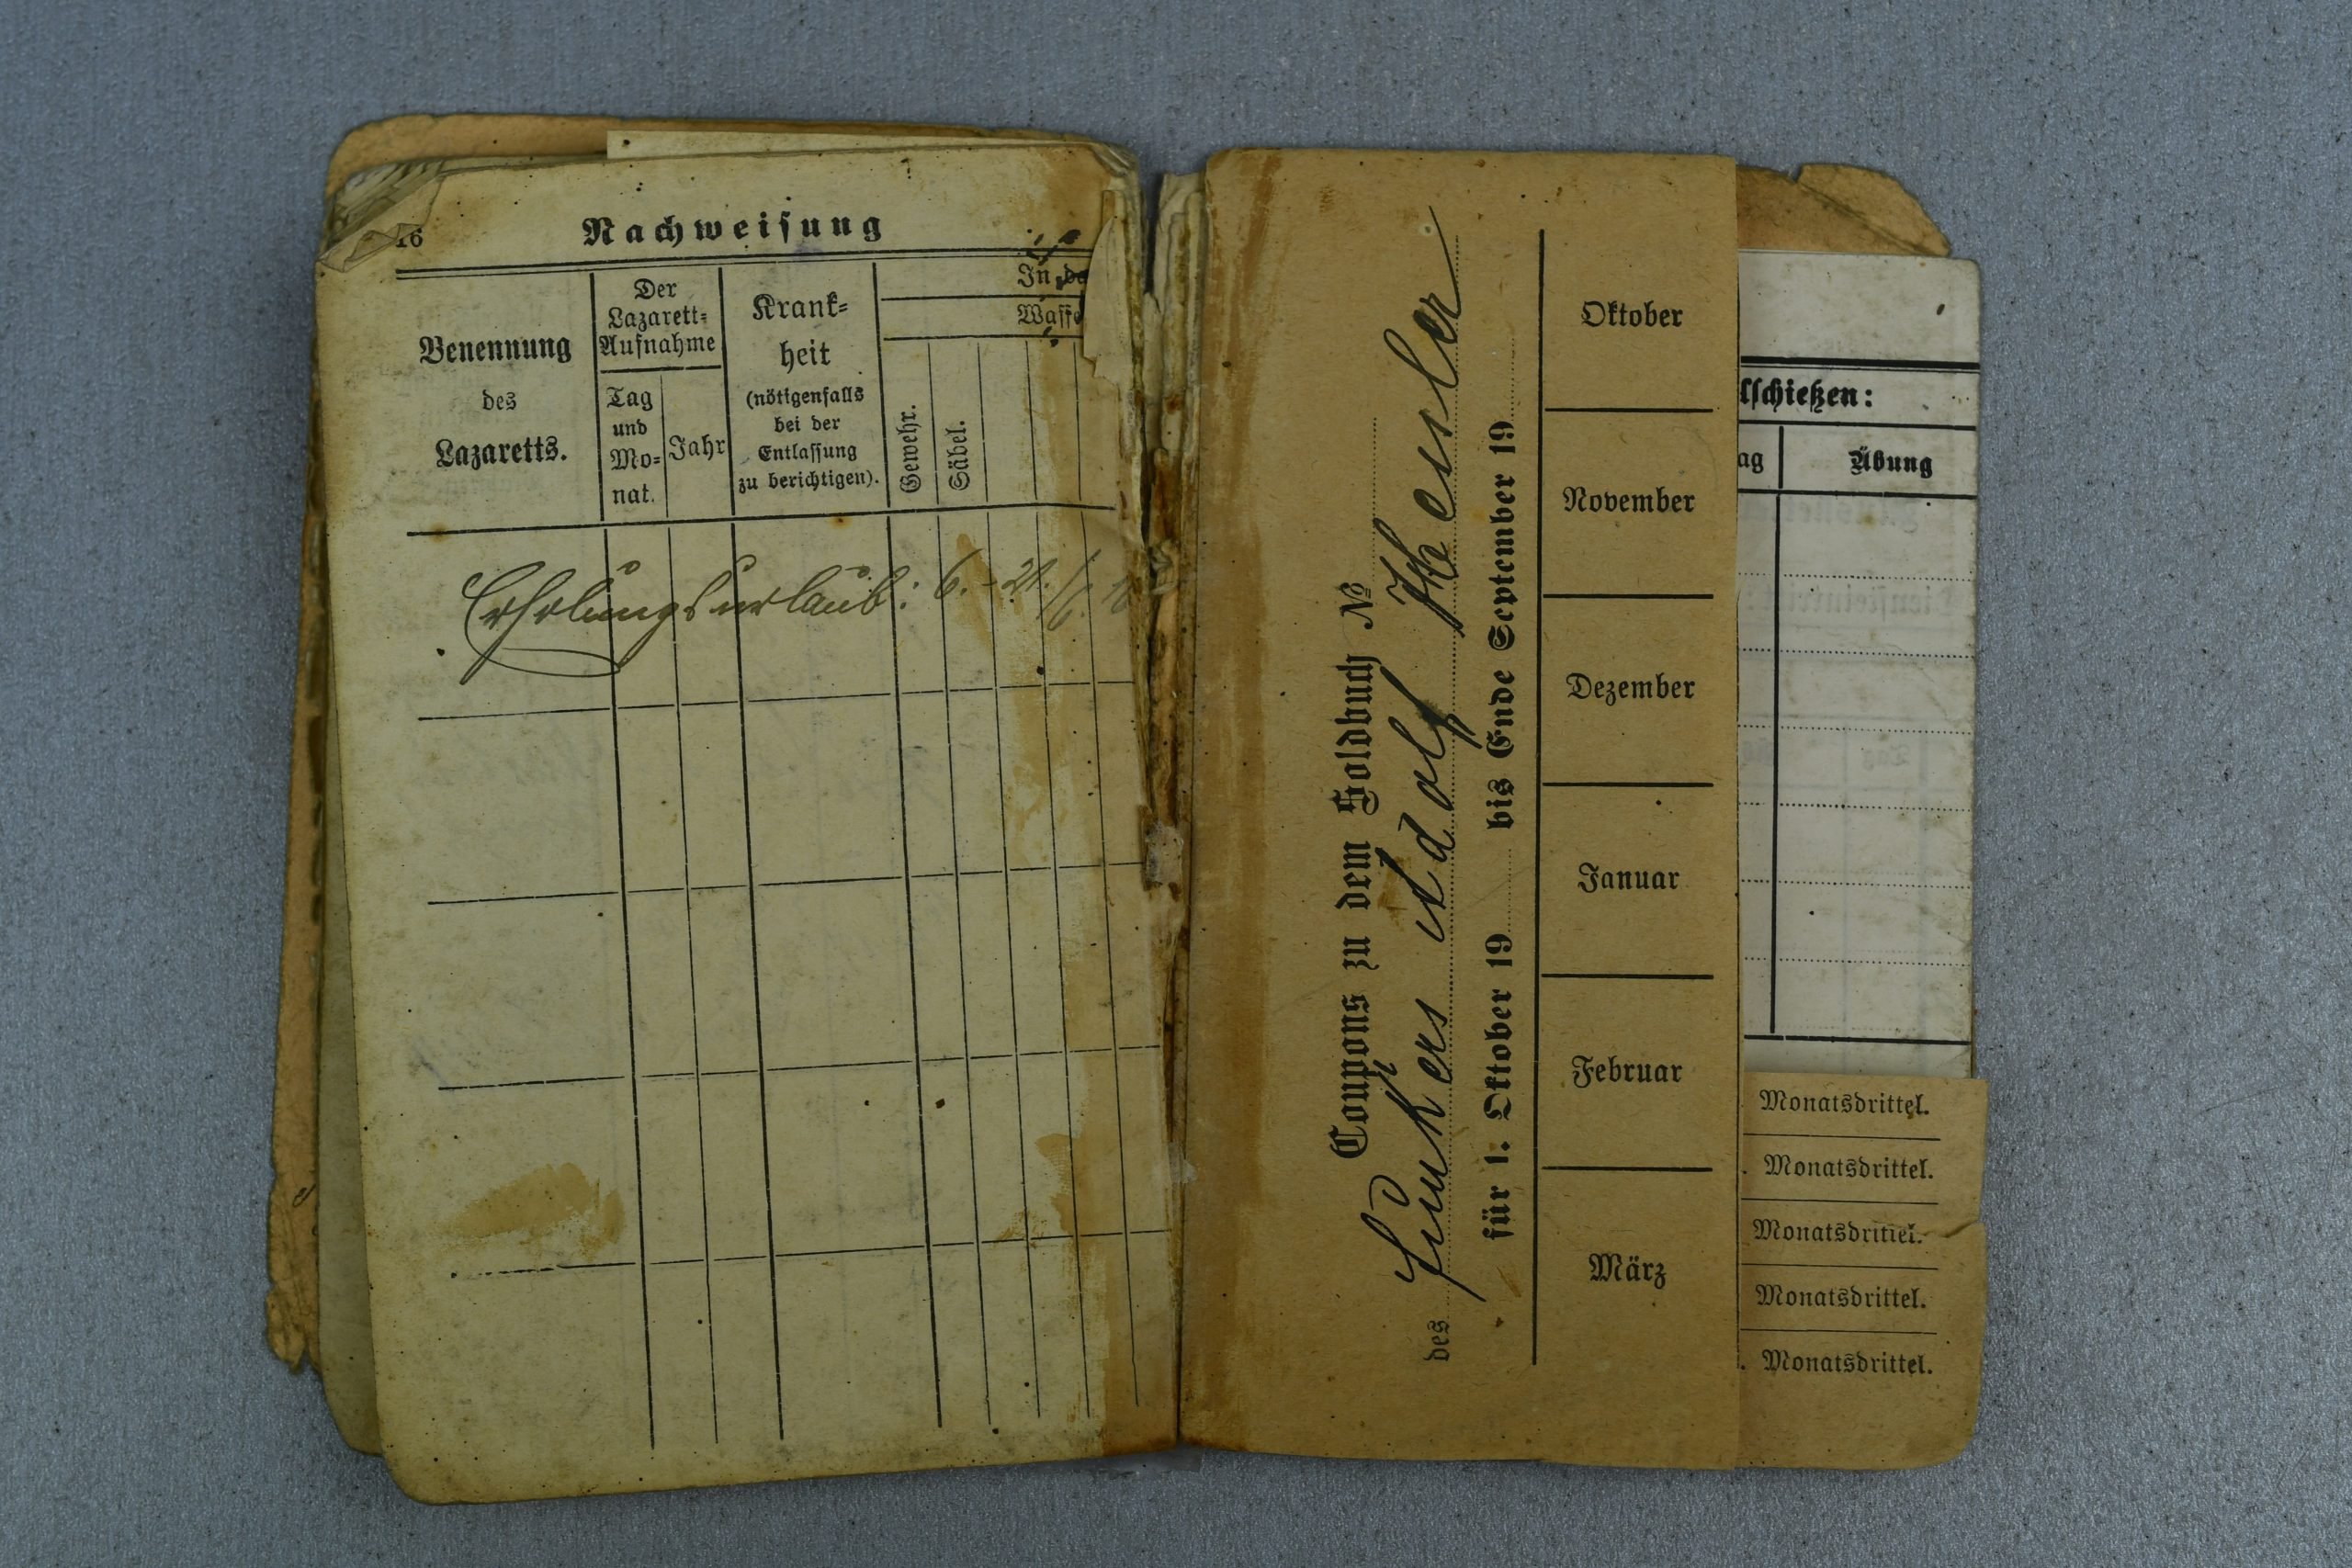 16
Nachweisung
Benennung
des
Lazaretts.
Der
Lazarett=
Aufnahme
Tag
und
Mo=
nat.
Jahr
Krank=
heit
(nötigenfalls
bei der
Entlassung
zu berichtigen).
In de
Waffe
Gewehr.
Säbel.
Erholungsurlaub: 6. - 21. /6. 18
Coupons zu dem Soldbuch №
des Funkers Adolf Hensler
für 1. Oktober 19 bis Ende September 19
Oktober
November
Dezember
Januar
Februar
März
lschießen:
ag
Übung
Monatsdrittel.
. Monatsdrittel.
Monatsdrittel.
Monatsdrittel.
. Monatsdrittel.